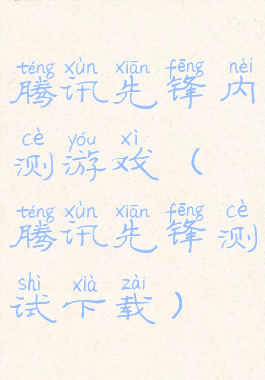 téng xùn xiān fēng nèi
腾讯先锋内
cè yóu xì
测游戏（
téng xùn xiān fēng cè
腾讯先锋测
shì xià zài
试下载）